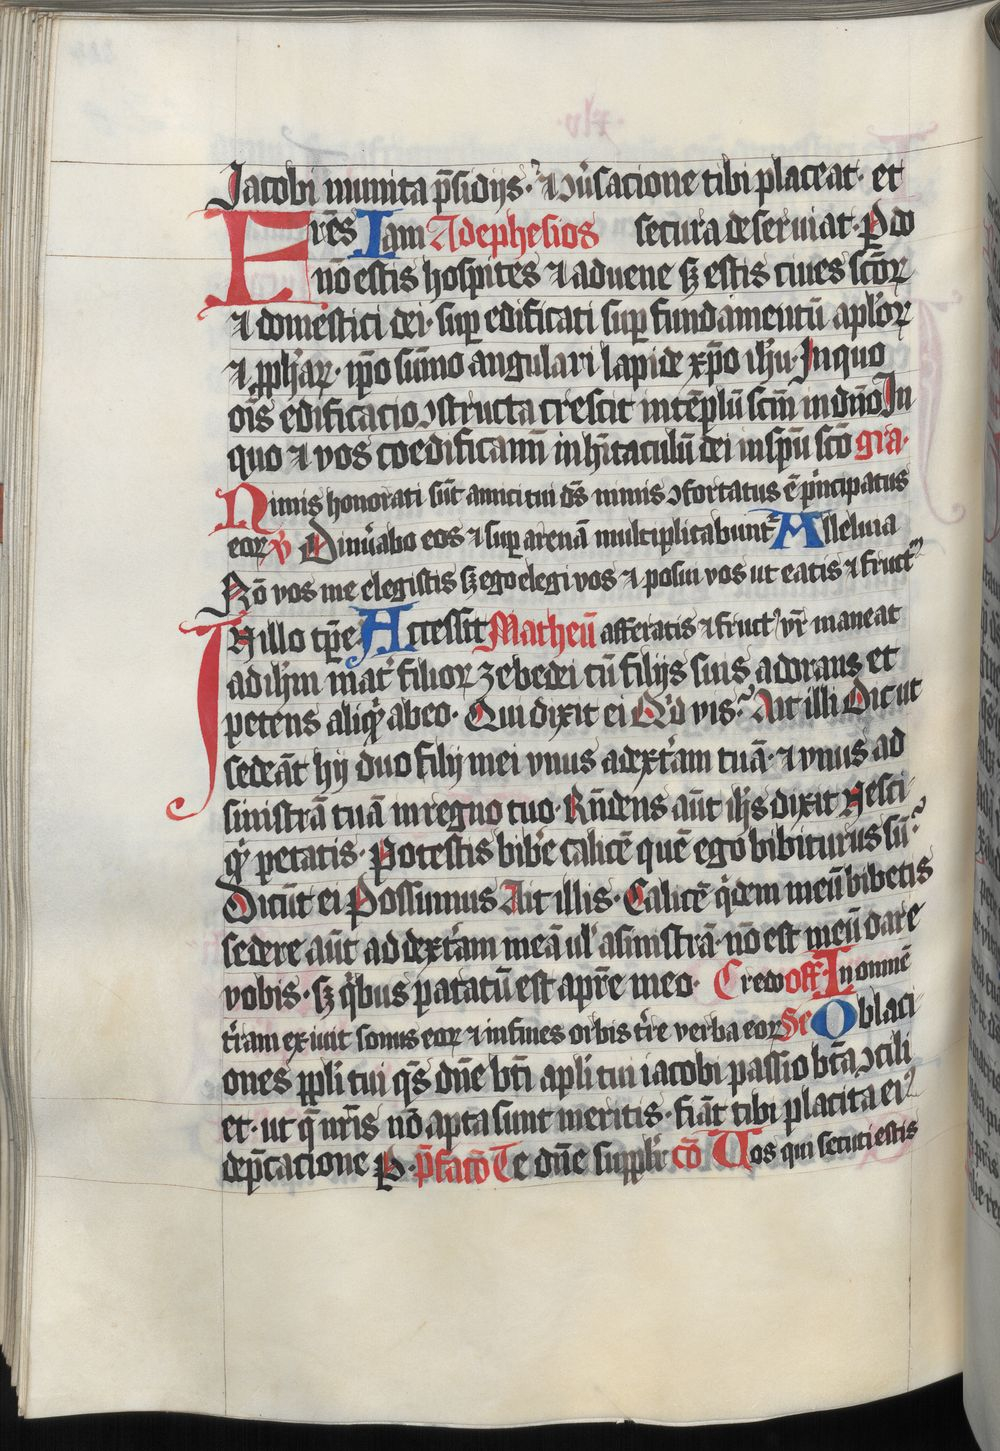 Jacobi munita p̄sidijs· ⁊ ɔu̾sacione tibi placeat· et
Frēs Iam Ad ephesios secura deseruiat· P do
nō estis hospites ⁊ aduene sȝ estis ciues scōꝝ
⁊ domestici dei· suꝑ edificati suꝑ fundamentū aplōꝝ
⁊ ꝓph̄aꝝ· ip̄o sūmo angulari lapide xp̄o ih̄u· In quo
oīs edificacio ɔstructa crescit in tēplū scm̄ in dn̄o In
quo ⁊ vos coedificamī in h̄itaculū dei in sp̄u scō gra·
Nimis honorati sūt amici tui ds̄ nimis ɔfortatus ē pͥncipatus
eoꝝ v̄ Dinūabo eos ⁊ suꝑ arenā multiplicabunt᷑ Alleluia
Nō vos me elegistis sȝ ego elegi vos ⁊ posui vos ut eatis ⁊ fructū
In illo tꝑe Accessit Matheū afferatis ⁊ fruct᷒ vr̄ maneat
ad ih̄m mat̾ filioꝝ zebedei cū filijs suis adorans et
petens aliqͥd ab eo· Qui dixit ei Qͥd vis? Ait illi Dic ut
sedeāt hij duo filij mei vnus ad dext̾am tuā· ⁊ vnus ad
sinistrā tuā in regno tuo· Rn̄dens aūt ih̄s dixit Nesci-
qͥd petatis· Potestis bib̾e calicē quē ego bibiturus sū?
Dicūt ei Possumus Ait illis· Calicē qͥdem meū bibetis
sedere aūt ad dext̾am meā ul̾ a sinistrā· nō est meū dare
vobis· sȝ qͥbus paratū est a pr̄e meo· Credo off· In omnē
t̾ram exiuit sonus eoꝝ ⁊ in fines orbis t̾re verba eoꝝ Se Oblaci-
ones ppl̄i tui qs̄ dn̄e bt̄i apl̄i tui iacobi passio bt̄a ɔcili
et· ut q̄ nr̄is nō apta sunt meritis· fiāt tibi placita ei᷒
dep̄catione P· p̄facō Te dn̄e suppl̾r cō Vos qui secuti estis